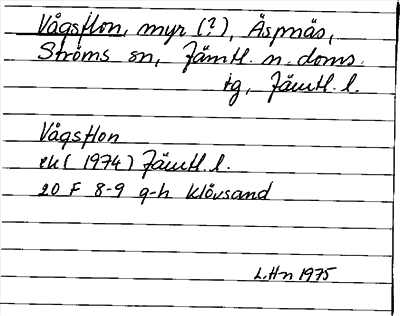 Vågsflon, myr (?), Äspnäs,
Ströms sn, Jämtl. n. doms.
tg, Jämtl. l.
Vågsflon
ek (1974) Jämtl. l.
20 F 8-9 g-h Klövsand
L.Hn 1975